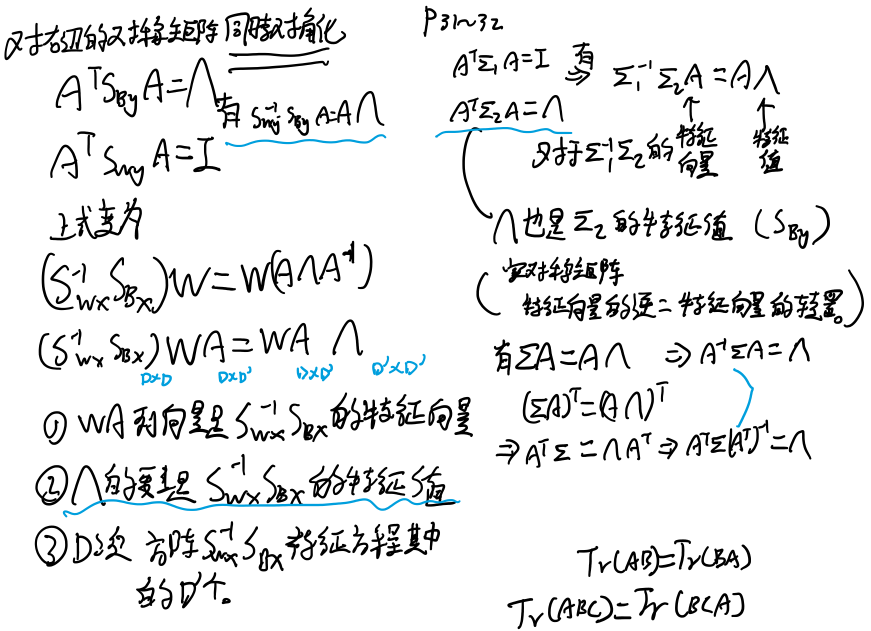 对右边的对称矩阵同时对角化
A^T S_{By} A = Λ
有 S_{wy}^{-1} S_{By} A = A Λ
A^T S_{wy} A = I
上式变为
(S_{wx}^{-1} S_{Bx})W = W(AΛA^{-1})
(S_{wx}^{-1} S_{Bx})WA = WA Λ
D×D D×D' D×D' D'×D'
① WA 列向量是 S_{wx}^{-1} S_{Bx} 的特征向量
② Λ的元素是 S_{wx}^{-1} S_{Bx} 的特征值
③ D 方阵 S_{wx}^{-1} S_{Bx} 特征方程其中
的D'个。
P31~32
A^T Σ_1 A = I 有
⇒ Σ_1^{-1} Σ_2 A = A Λ
A^T Σ_2 A = Λ
↑ ↑
对于 Σ_1^{-1} Σ_2 的 特征向量 特征值
Λ也是 Σ_2 的特征值 (S_{By})
(实对称矩阵
特征向量的逆=特征向量的转置。)
有 ΣA = AΛ ⇒ A^{-1}ΣA = Λ
(ΣA)^T = (AΛ)^T
⇒ A^T Σ = ΛA^T ⇒ A^T Σ(A^T)^{-1} = Λ
Tr(AB)=Tr(BA)
Tr(ABC)=Tr(BCA)